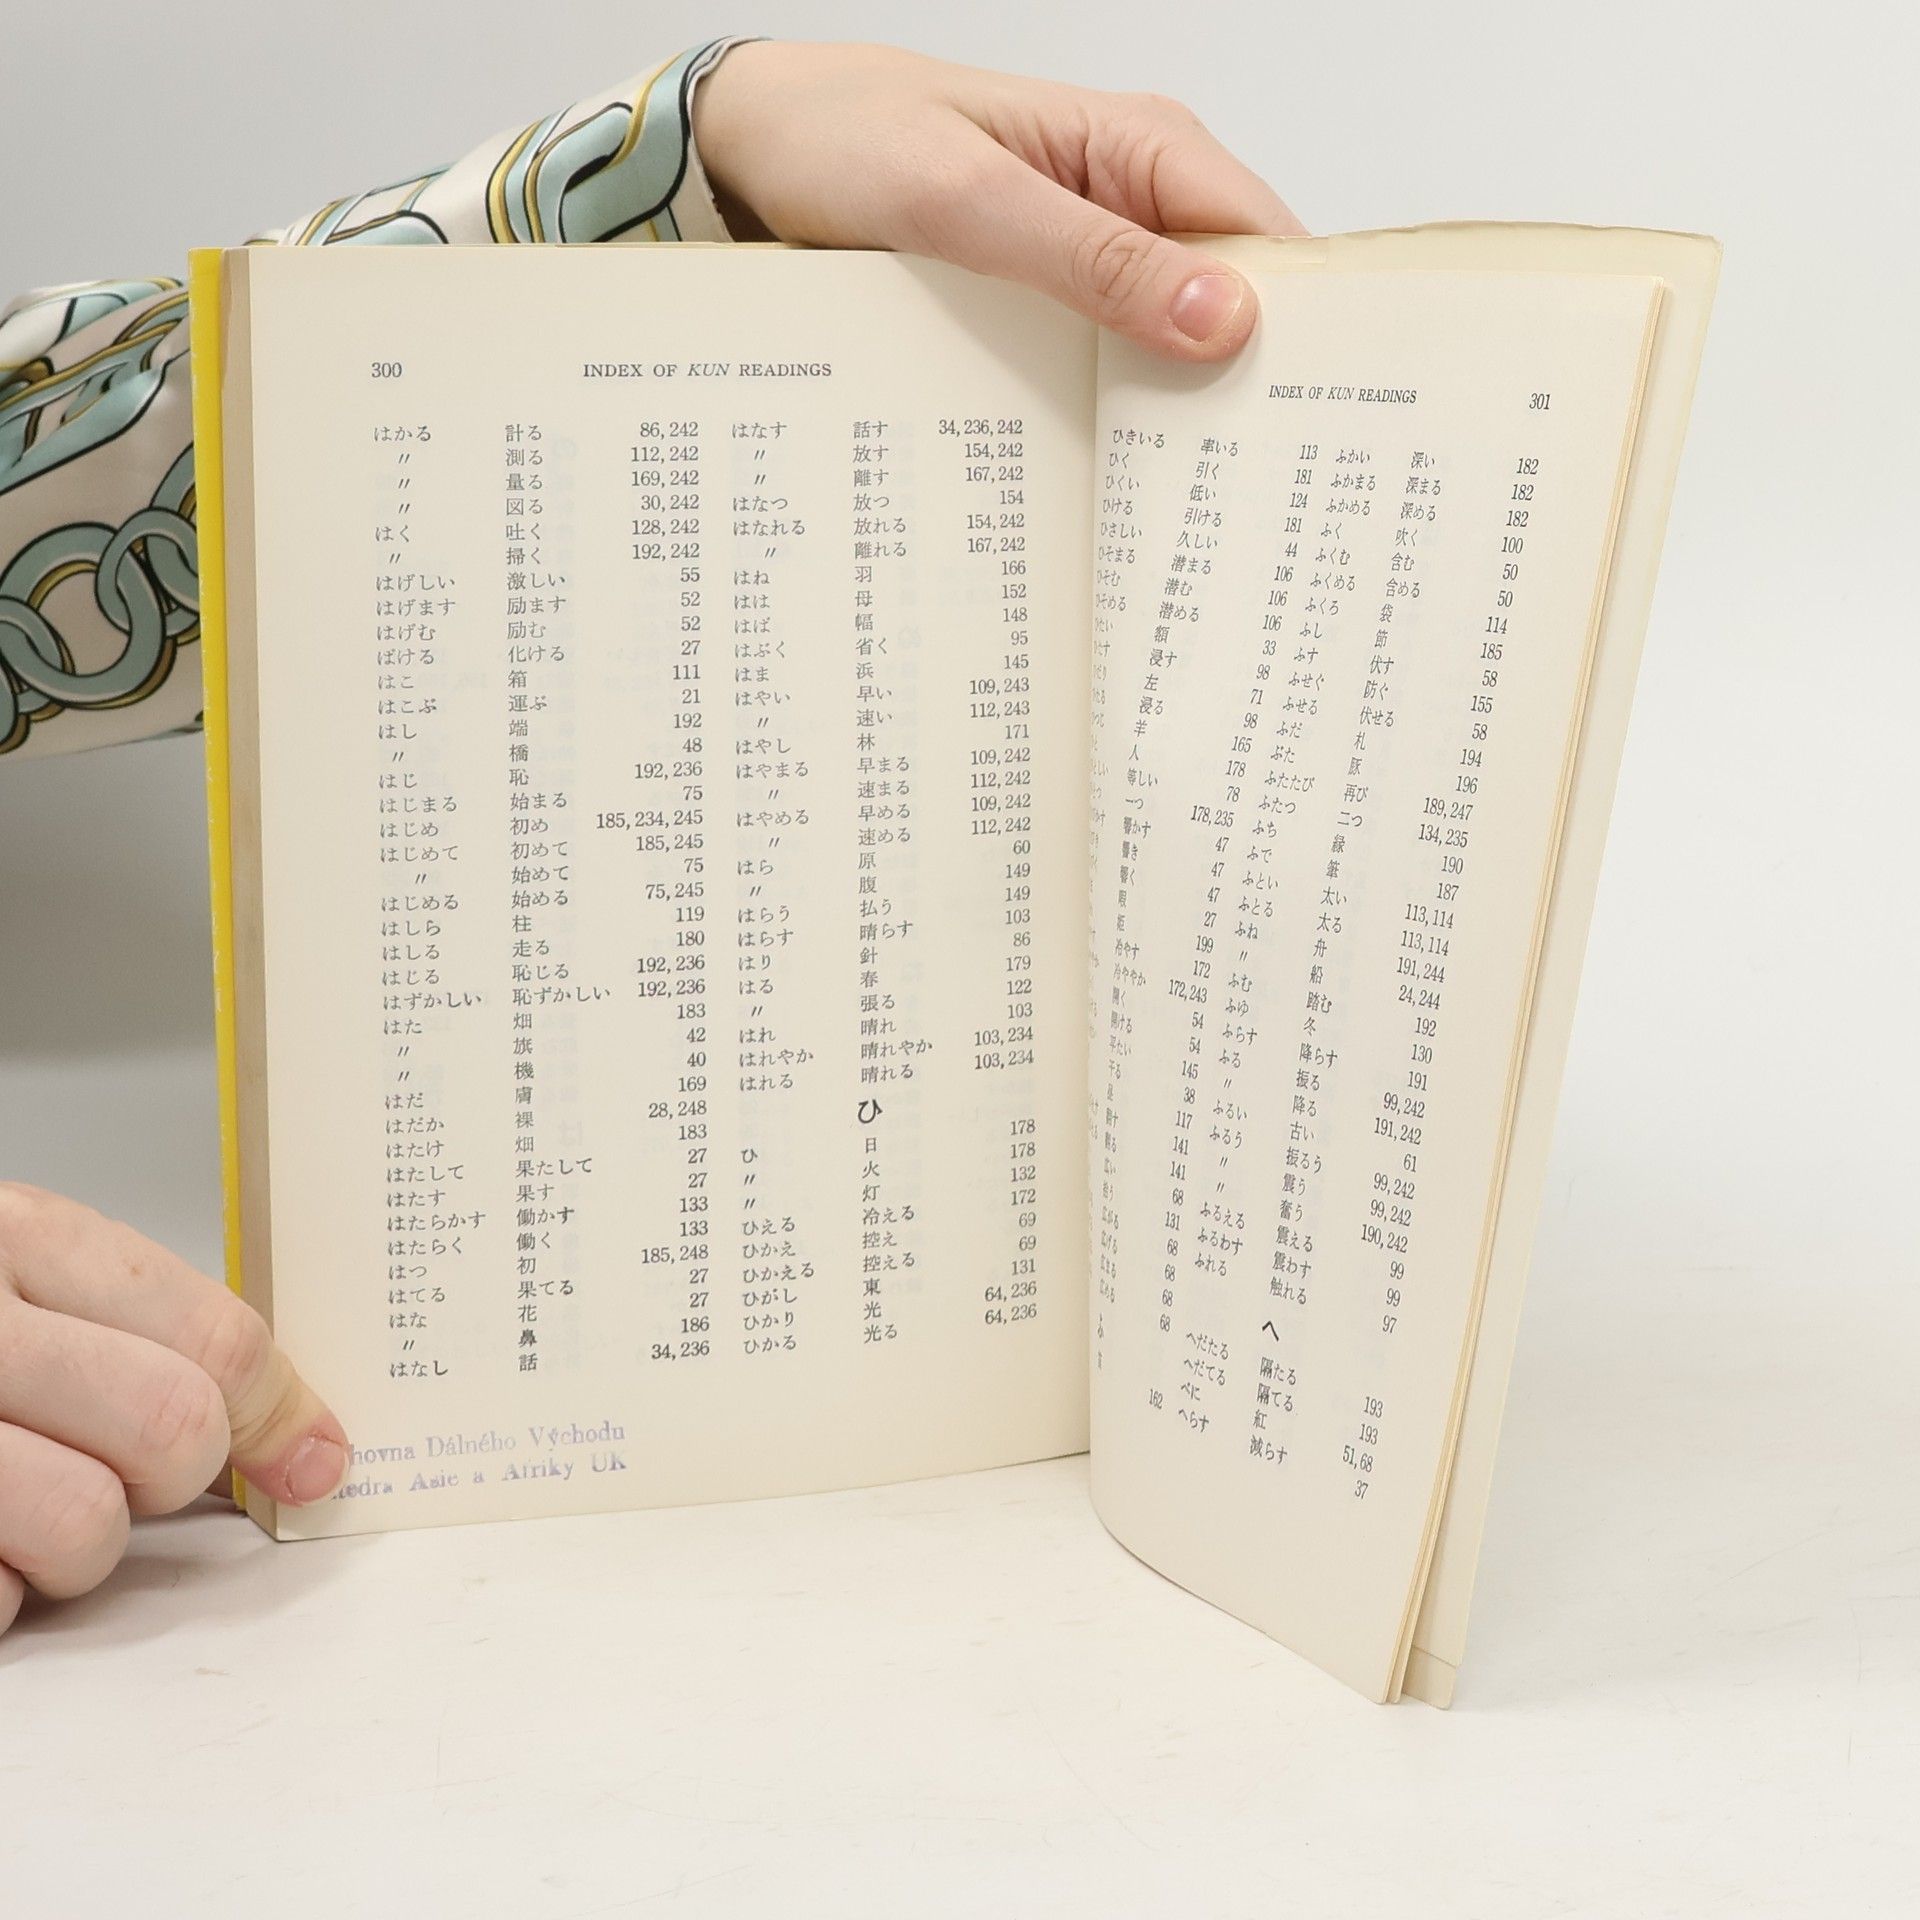 300
INDEX OF KUN READINGS
はかる 計る 86, 242
〃 測る 112, 242
〃 量る 169, 242
〃 図る 30, 242
はく 吐く 128, 242
〃 掃く 192, 242
はげしい 激しい 55
はげます 励ます 52
はげむ 励む 52
ばける 化ける 27
はこ 箱 111
はこぶ 運ぶ 21
はし 端 192
〃 橋 48
はじ 恥 192, 236
はじまる 始まる 75
はじめ 初め 185, 234, 245
はじめて 初めて 185, 245
〃 始めて 75
はじめる 始める 75, 245
はしら 柱 119
はしる 走る 180
はじる 恥じる 192, 236
はずかしい 恥ずかしい 192, 236
はた 畑 183
〃 旗 42
〃 機 40
はだ 膚 169
はだか 裸 28, 248
はたけ 畑 183
はたして 果たして 27
はたす 果す 27
はたらかす 働かす 133
はたらく 働く 133
はつ 初 185, 248
はてる 果てる 27
はな 花 27
〃 鼻 186
はなし 話 34, 236
はなす 話す 34, 236, 242
〃 放す 154, 242
〃 離す 167, 242
はなつ 放つ 154
はなれる 放れる 154, 242
〃 離れる 167, 242
はね 羽 166
はは 母 152
はば 幅 148
はぶく 省く 95
はま 浜 145
はやい 早い 109, 243
〃 速い 112, 243
はやし 林 171
はやまる 早まる 109, 242
〃 速まる 112, 242
はやめる 早める 109, 242
〃 速める 112, 242
はら 原 60
〃 腹 149
はらう 払う 149
はらす 晴らす 103
はり 針 86
はる 春 179
〃 張る 122
はれ 晴れ 103
はれやか 晴れやか 103, 234
はれる 晴れる 103, 234
ひ
ひ 日 178
〃 火 178
〃 灯 132
ひえる 冷える 172
ひかえ 控え 69
ひかえる 控える 69
ひがし 東 131
ひかり 光 64, 236
ひかる 光る 64, 236
hovna Dálného Východu
edra Asie a Afriky UK
INDEX OF KUN READINGS
301
ひきいる 率いる 113
ひく 引く 181
ひくい 低い 124
ひける 引ける 181
ひさしい 久しい 44
ひそまる 潜まる 106
ひそむ 潜む 106
ひそめる 潜める 106
ひたい 額 33
ひたす 浸す 98
左 71
浸る 98
羊 165
人 178
等しい 78
一つ 178, 235
響かす 47
響き 47
響く 47
暇 27
姫 199
冷やす 172
冷ややか 172, 243
開く 54
開ける 54
平たい 145
干る 38
昼 117
翻す 141
翻る 141
広い 68
拾う 131
広がる 68
広げる 68
広まる 68
広める 68
ふ
162
ふかい 深い 182
ふかまる 深まる 182
ふかめる 深める 182
ふく 吹く 100
ふくむ 含む 50
ふくめる 含める 50
ふくろ 袋 114
ふし 節 185
ふす 伏す 58
ふせぐ 防ぐ 155
ふせる 伏せる 58
ふだ 札 194
ぶた 豚 196
ふたたび 再び 189, 247
ふたつ 二つ 134, 235
ふち 縁 190
ふで 筆 187
ふとい 太い 113, 114
ふとる 太る 113, 114
ふね 舟 191, 244
〃 船 24, 244
ふむ 踏む 192
ふゆ 冬 130
ふらす 降らす 191
ふる 振る 99, 242
〃 降る 191, 242
ふるい 古い 61
ふるう 振るう 99, 242
〃 震う 99, 242
〃 奮う 190, 242
ふるえる 震える 99
ふるわす 震わす 99
ふれる 触れる 97
へ
へだたる 隔たる 193
へだてる 隔てる 193
べに 紅 51, 68
へらす 減らす 37